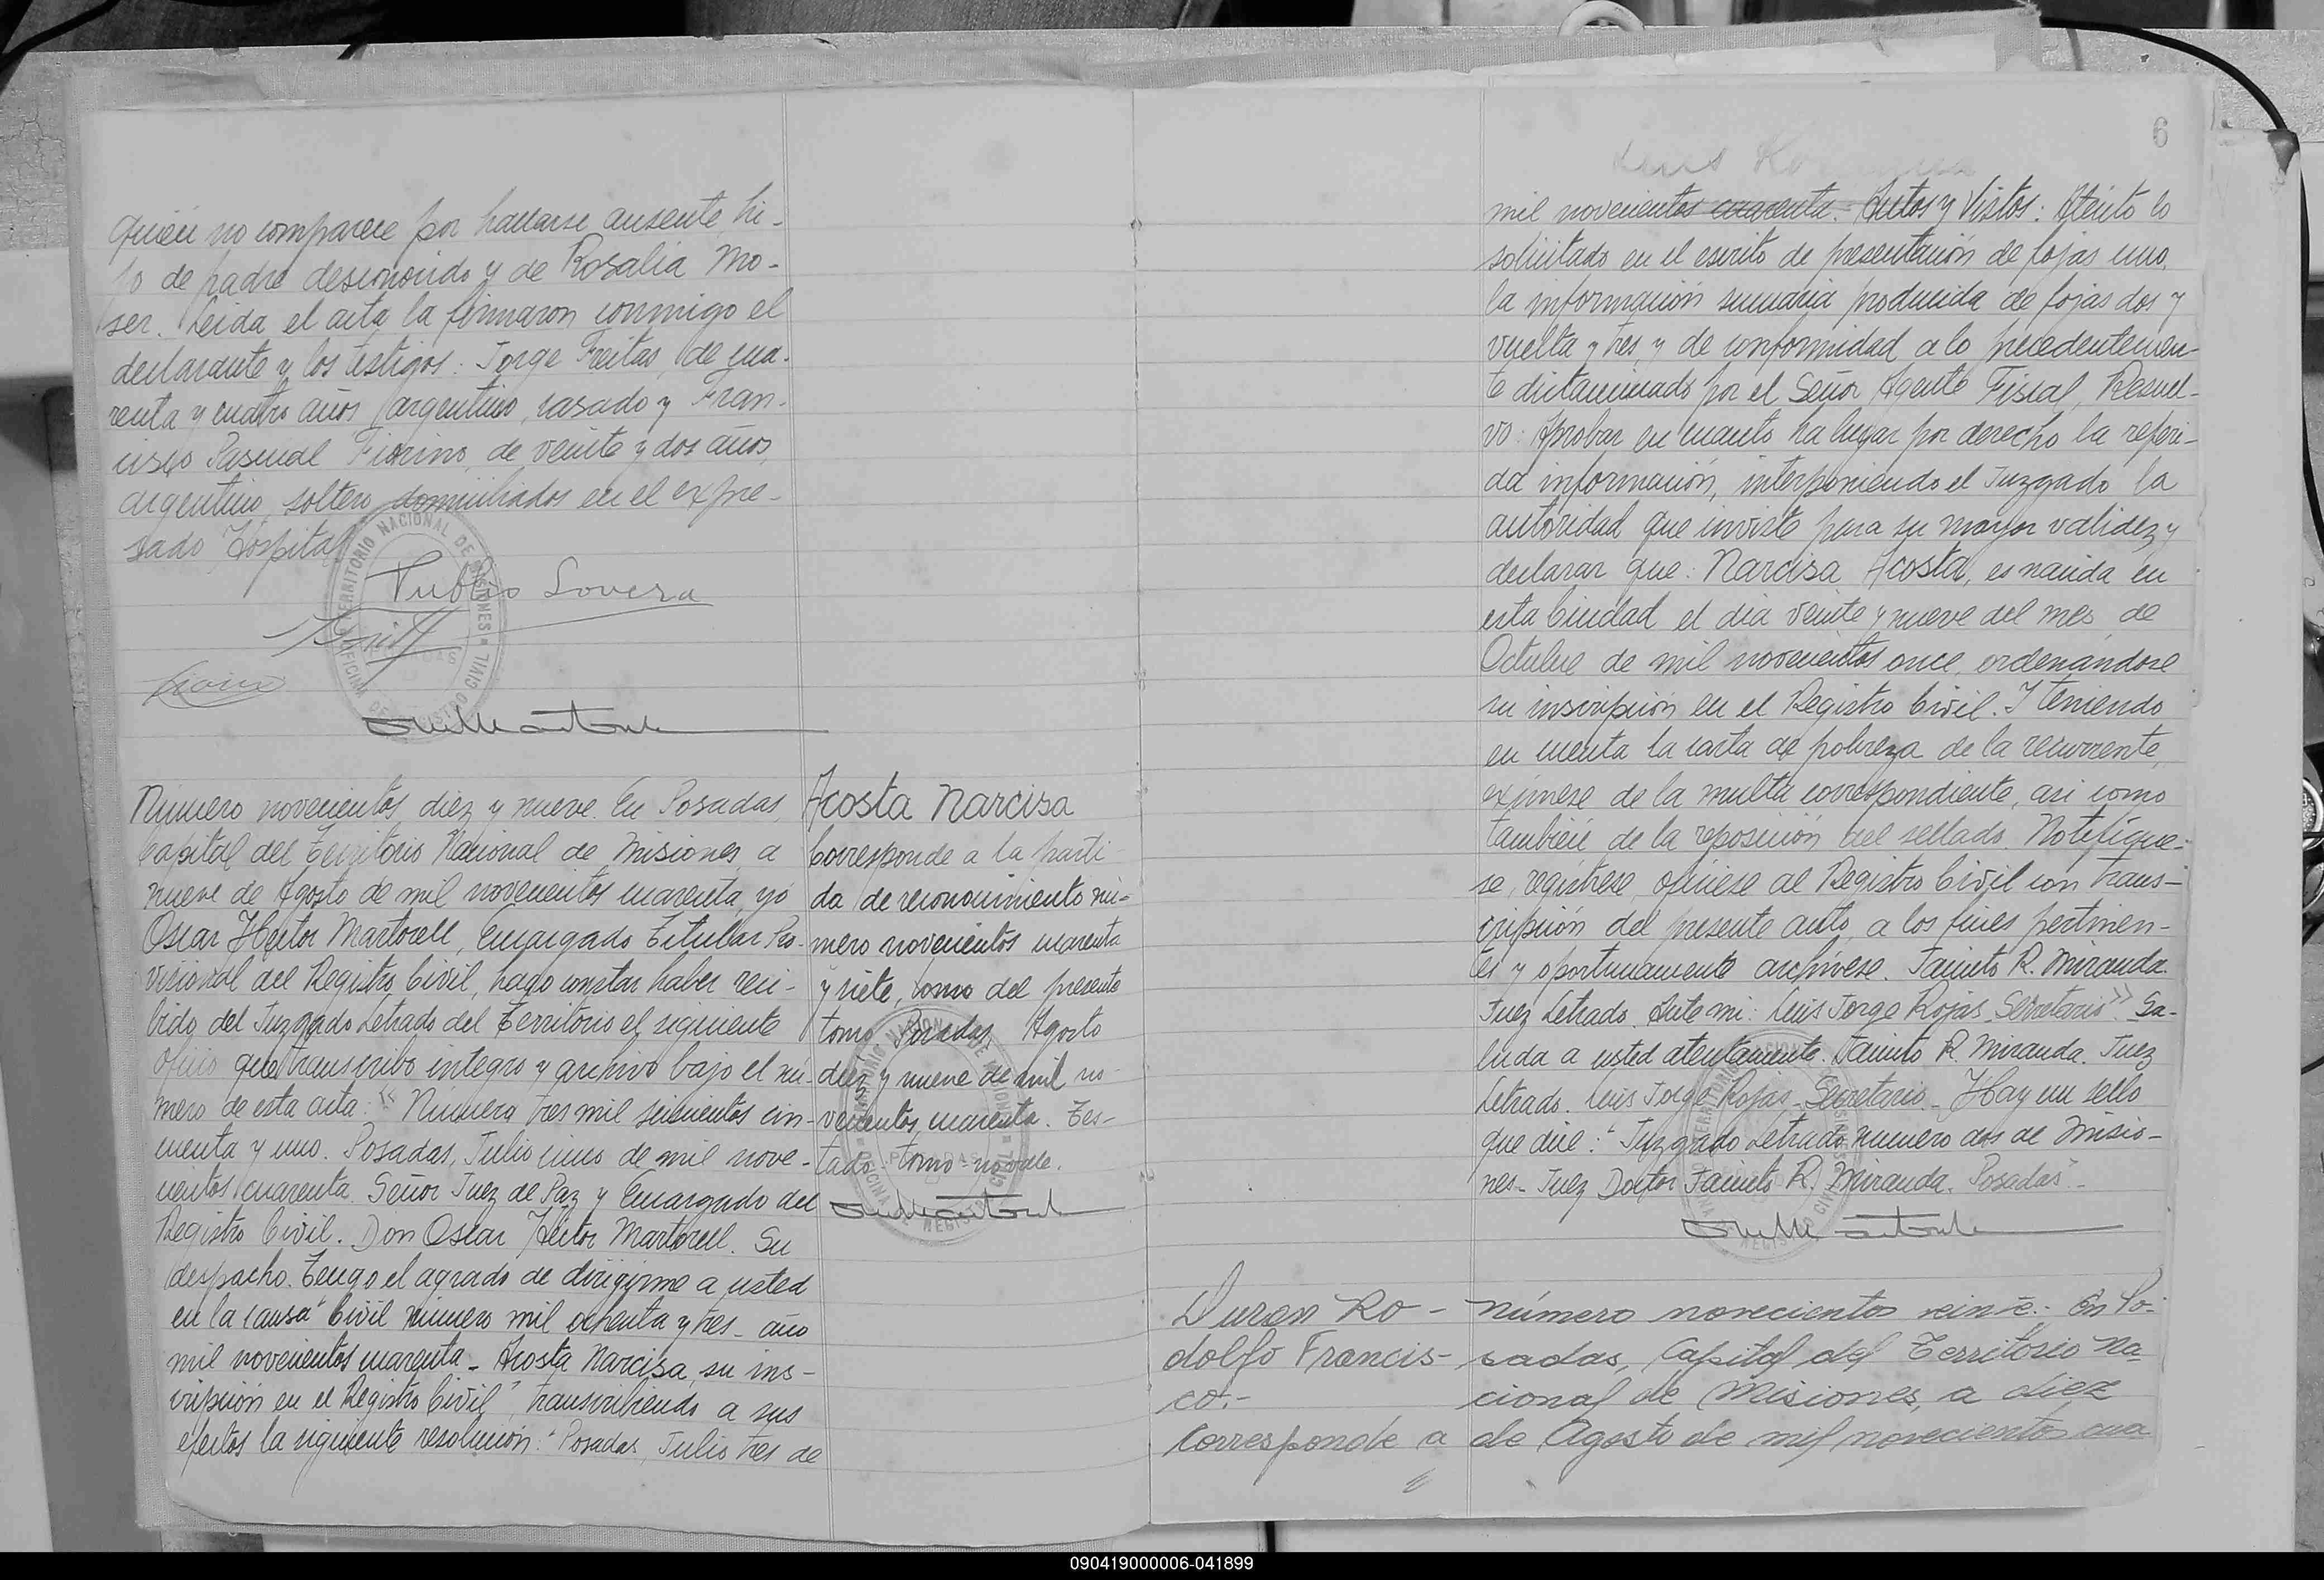 quien no comparece por hallarse ausente, hi-
jo de padre desconocido y de Rosalia Mo-
ser. Leida el acta la firmaron conmigo el
declarante y los testigos: Jorge Freitas, de cua-
renta y cuatro años, argentino, casado y Fran-
cisco Pascual Fiorino, de veinte y dos años,
argentino, soltero, domiciliados en el expre-
sado Hospital
Tublio Lovera
Número novecientos diez y nueve. En Posadas,
Capital del Territorio Nacional de Misiones, a
nueve de Agosto de mil novecientos cuarenta, yo
Oscar Héctor Martorell, Encargado Titular Pro-
visional del Registro Civil, hago constar haber reci-
bido del Juzgado Letrado del Territorio el siguiente
oficio que transcribo integro y archivo bajo el nú-
mero de esta acta: "Numero tres mil seiscientos cin-
cuenta y uno. Posadas, Julio cinco de mil nove-
cientos cuarenta. Señor Juez de Paz y Encargado del
Registro Civil. Don Oscar Héctor Martorell. Su
despacho. Tengo el agrado de dirigirme a usted
en la causa "Civil número mil ochenta y tres - año
mil novecientos cuarenta - Acosta Narcisa, su ins-
cripción en el Registro Civil", transcribiendo a sus
efectos la siguiente resolución: "Posadas, Julio tres de
Acosta Narcisa
Corresponde a la parti-
da de reconocimiento nú-
mero novecientos cuarenta
y siete, tomo del presente
tomo. Posadas, Agosto
diez y nueve de mil no-
vecientos cuarenta. Tes-
tado - tomo - no vale.
6
mil novecientos cuarenta. Autos y Vistos: Atento lo
solicitado en el escrito de presentación de fojas uno,
la información sumaria producida de fojas dos y
vuelta y tres, y de conformidad a lo precedentemen-
te dictaminado por el Señor Agente Fiscal, Resuel-
vo: Aprobar en cuanto ha lugar por derecho la referi-
da información, interponiendo el Juzgado la
autoridad que inviste para su mayor validez y
declarar que: Narcisa Acosta, es nacida en
esta Ciudad el día veinte y nueve del mes de
Octubre de mil novecientos once, ordenándose
su inscripción en el Registro Civil. Y teniendo
en cuenta la carta de pobreza de la recurrente,
exímese de la multa correspondiente, asi como
también de la reposición del sellado. Notifíque-
se, regístrese, ofíciese al Registro Civil con trans-
cripción del presente auto, a los fines pertinen-
tes y oportunamente archívese. Jacinto R. Miranda.
Juez Letrado. Ante mi: Luis Jorge Rojas Secretario". Sa-
luda a usted atentamente. Jacinto R. Miranda. Juez
Letrado. Luis Jorge Rojas - Secretario - Hay un sello
que dice: "Juzgado Letrado numero dos de Misio-
nes - Juez Doctor Jacinto R. Miranda. Posadas" -
Duran Ro-
dolfo Francis-
co.-
Corresponde a
número novecientos veinte:- En Po-
sadas, Capital del Territorio Na-
cional de Misiones, a diez
de Agosto de mil novecientos cua
090419000006-041899